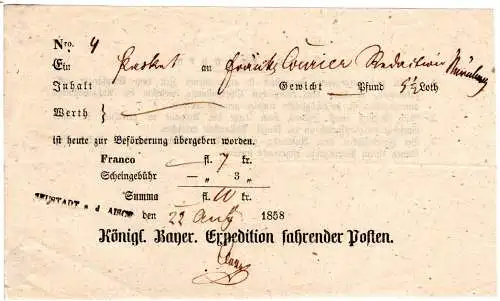 Nro. 4
Ein Packet an Fränk. Courier Redaction Nürnberg
Inhalt Gewicht — Pfund 5½ Loth
Werth }
ist heute zur Beförderung übergeben worden.
Franco — fl. 7 kr.
Scheingebühr — „ 3 „
Summa fl. 10 kr.
NEUSTADT a. d. AISCH den 22 Aug 1858
Königl. Bayer. Expedition fahrender Posten.